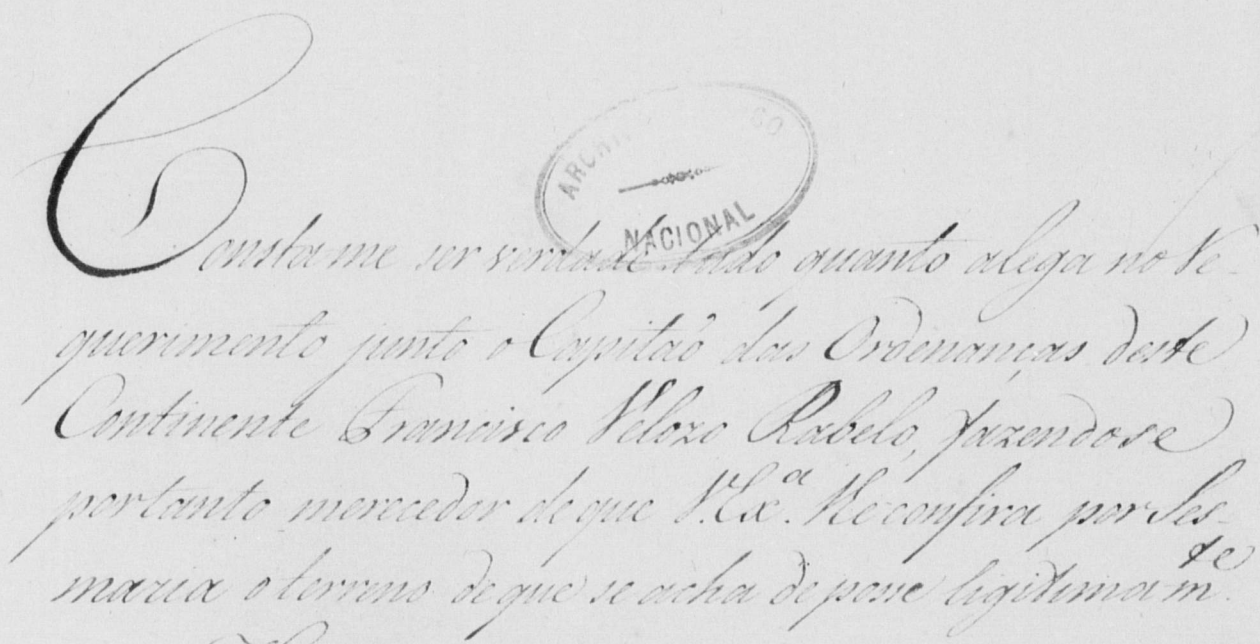 ARCHIVO PUBLICO
NACIONAL
Consta-me ser verdade tudo quanto alega no Re-
querimento junto o Capitaõ das Ordenanças deste
Continente Francisco Velozo Rabelo, fazendose
portanto merecedor de que V. Exª. lle confira por Ses-
maria o terreno de que se acha de posse legitimamte.